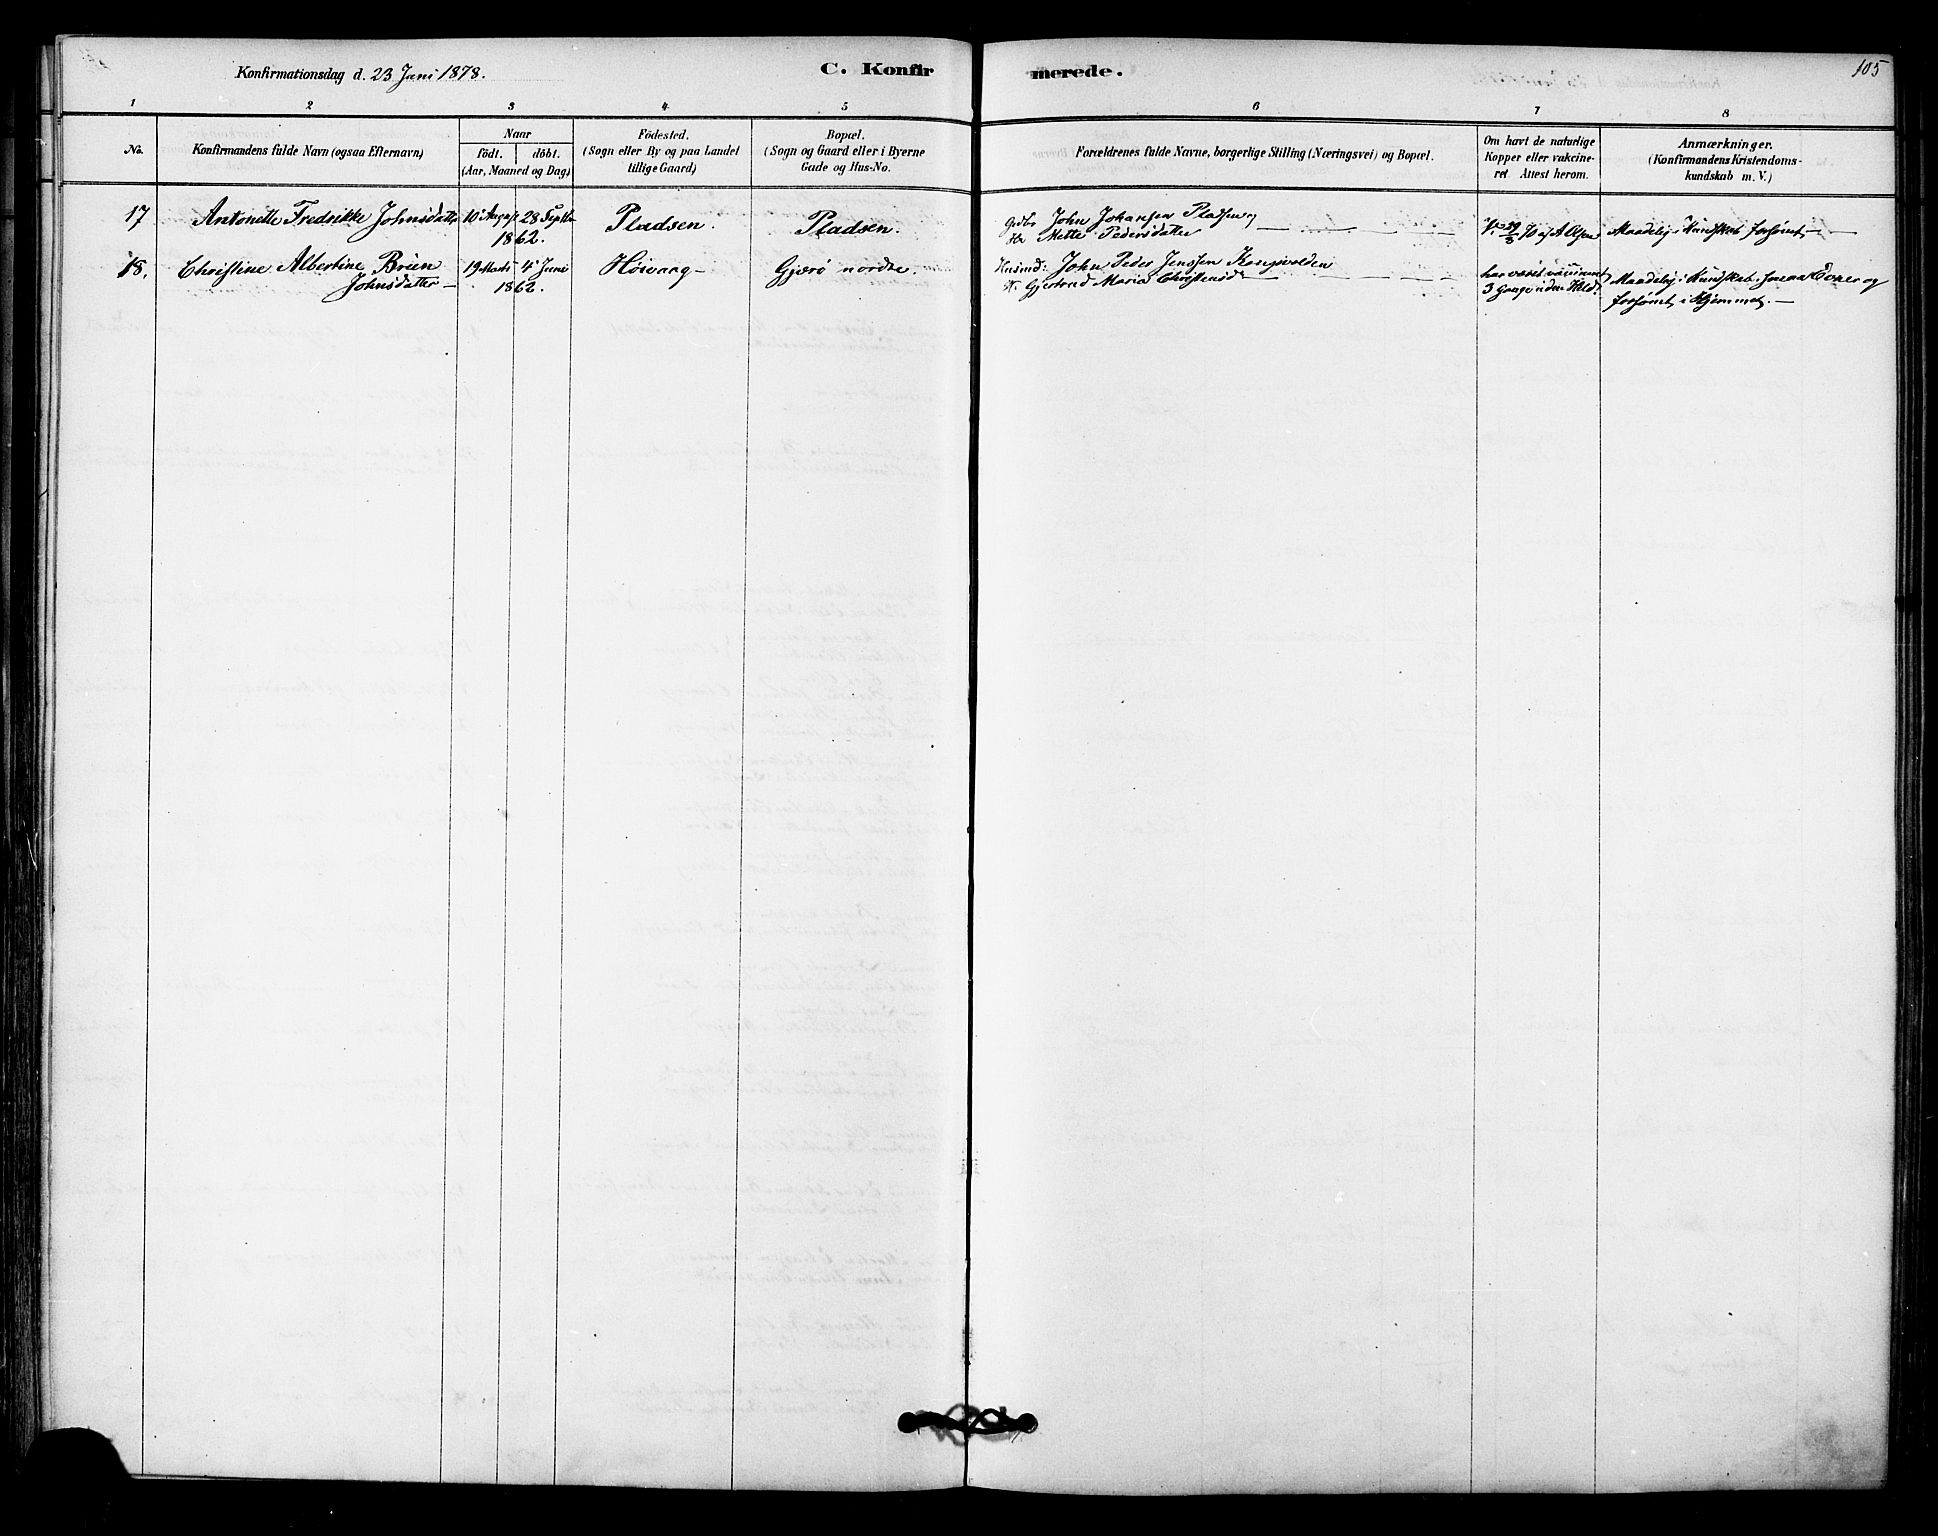 Konfirmationsdag d. 23 Juni 1878.
C. Konfirmerede.
105
1 2 3 4 5 6 7 8
No.
Konfirmandens fulde Navn (ogsaa Efternavn)
Naar
födt. döbt.
(Aar, Maaned og Dag)
Födested.
(Sogn eller By og paa Landet
tillige Gaard)
Bopæl.
(Sogn og Gaard eller i Byerne
Gade og Hus-No.
Forældrenes fulde Navne, borgerlige Stilling (Næringsvei) og Bopæl.
Om havt de naturlige
Kopper eller vakcine-
ret. Attest herom.
Anmærkninger.
(Konfirmandens Kristendoms-
kundskab m. V.)
17 Antonette Fredrikke Johnsdatter 10 August 28 Septbr
1862.
Pladsen. Pladsen.
Gdbr John Johansen Pladsen og
Mette Pedersdatter
V. 29/5 70 af A Olsen
Maadelig i Kundskab forsømt
18. Christine Albertine Brien
Johnsdatter
19 Marts 4 Juni
1862.
Hoivaag Gjærö nordre.
Husmd: John Peder Jenssen Kongsvolden
H. Gjertrud Maria Christensd
har været vaccineret
3 Gange uden Held.
Maadelig i Kundskab Evner og
forsømt i Hjemmet.